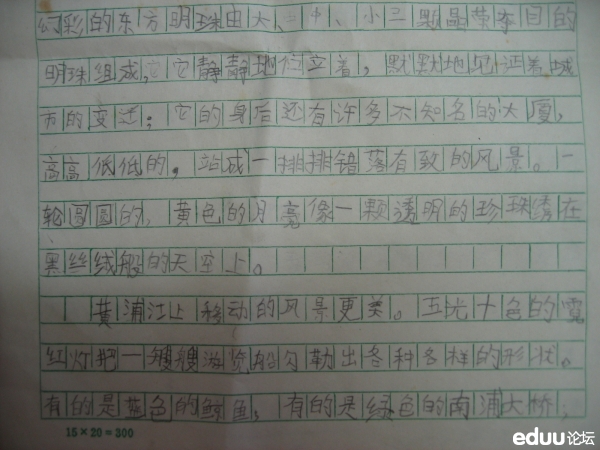 幻彩的东方明珠由大、中、小三颗晶莹夺目的
明珠组成,它静静地伫立着,默默地见证着城
市的变迁;它的身后还有许多不知名的大厦,
高高低低的,站成一排排错落有致的风景。一
轮圆圆的、黄色的月亮像一颗透明的珍珠绣在
黑丝绒般的天空上。
黄浦江上移动的风景更美。五光十色的霓
红灯把一艘艘游览船勾勒出各种各样的形状。
有的是蓝色的鲸鱼,有的是绿色的南浦大桥;
15×20=300
eduu论坛